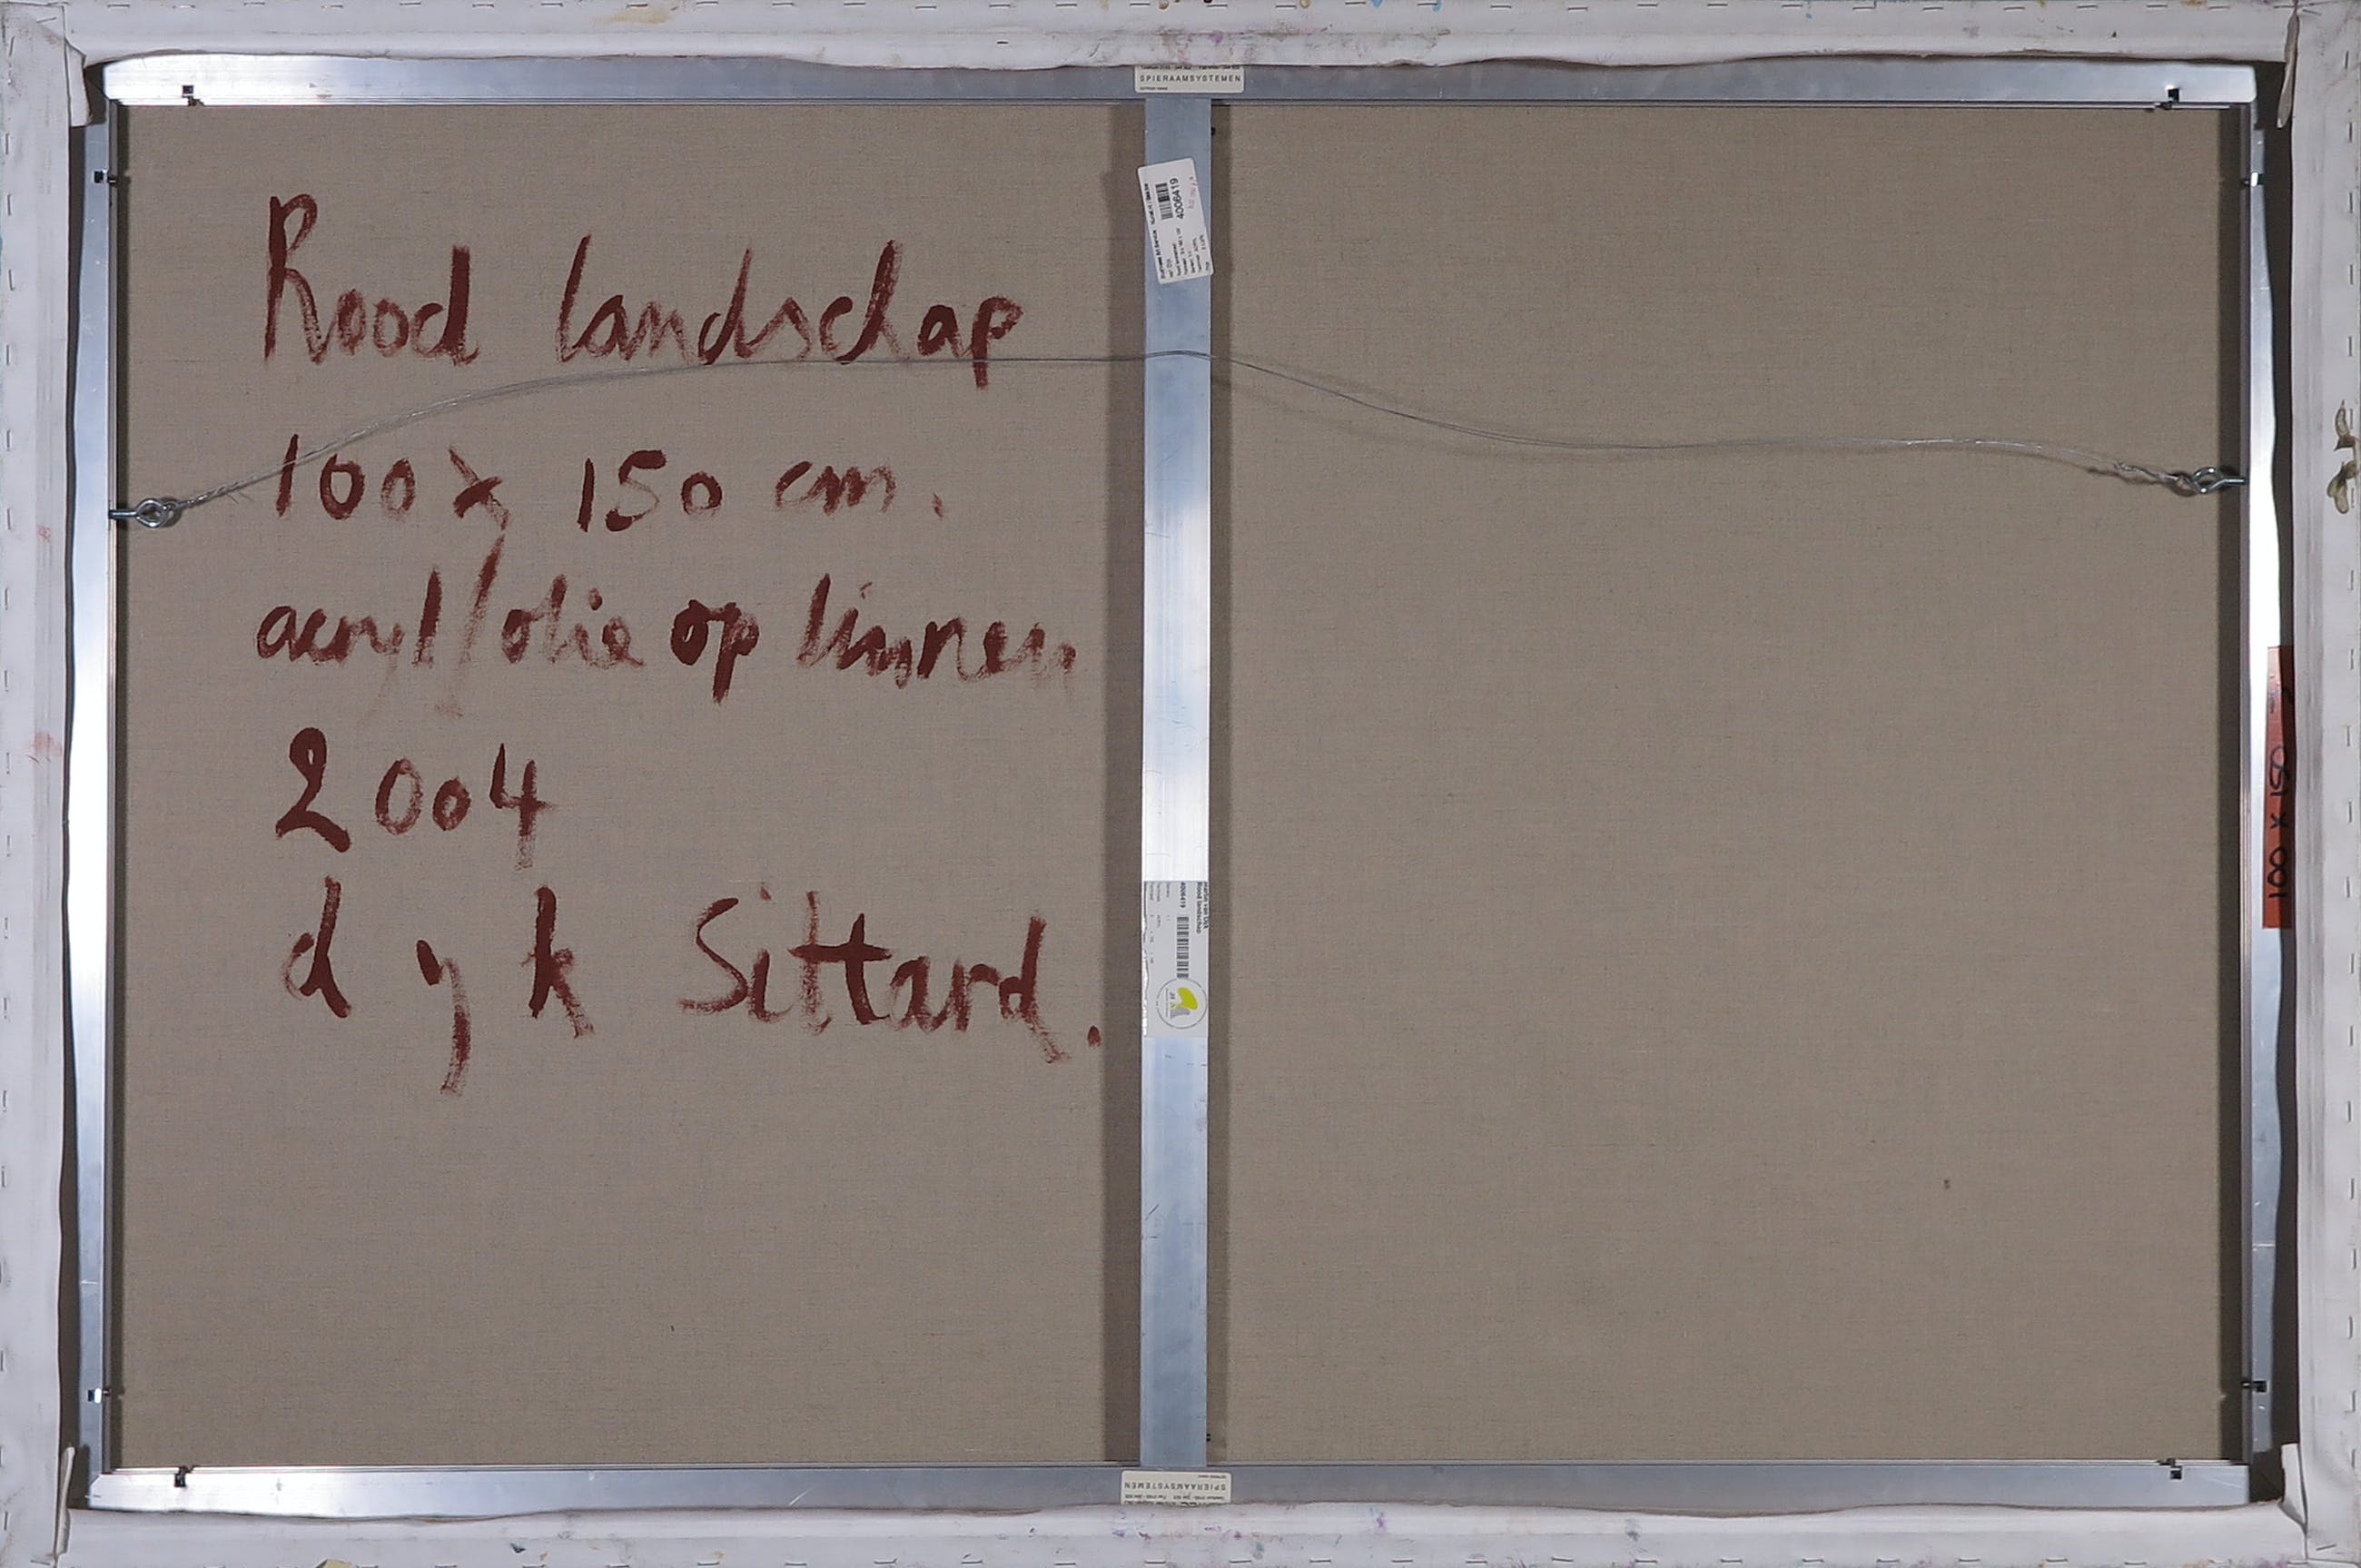 SPIERAAMSYSTEMEN
4006419
Rood landschap
100 x 150 cm.
acryl/olie op linnen
2004
dyk Sittard.
100 x 150
Rood landschap
4006419
SPIERAAMSYSTEMEN